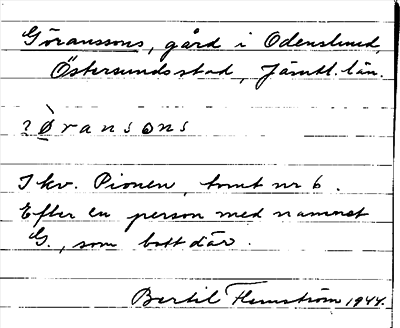 Göranssons, gård i Odenslund,
Östersunds stad, Jämtl. län.
jøransons
I kv. Pionen, tomt nr 6.
Efter en person med namnet
G., som bott där.
Bertil Flemström 1944.